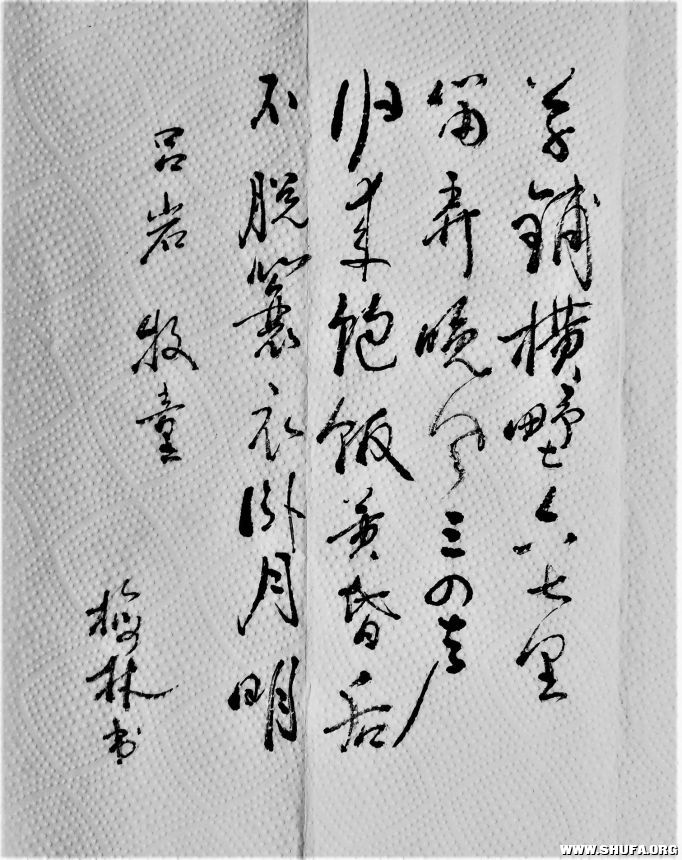 草铺横野六七里
笛弄晚风三四声
归来饱饭黄昏后
不脱蓑衣卧月明
吕岩 牧童
梅林书
WWW.SHUFA.ORG